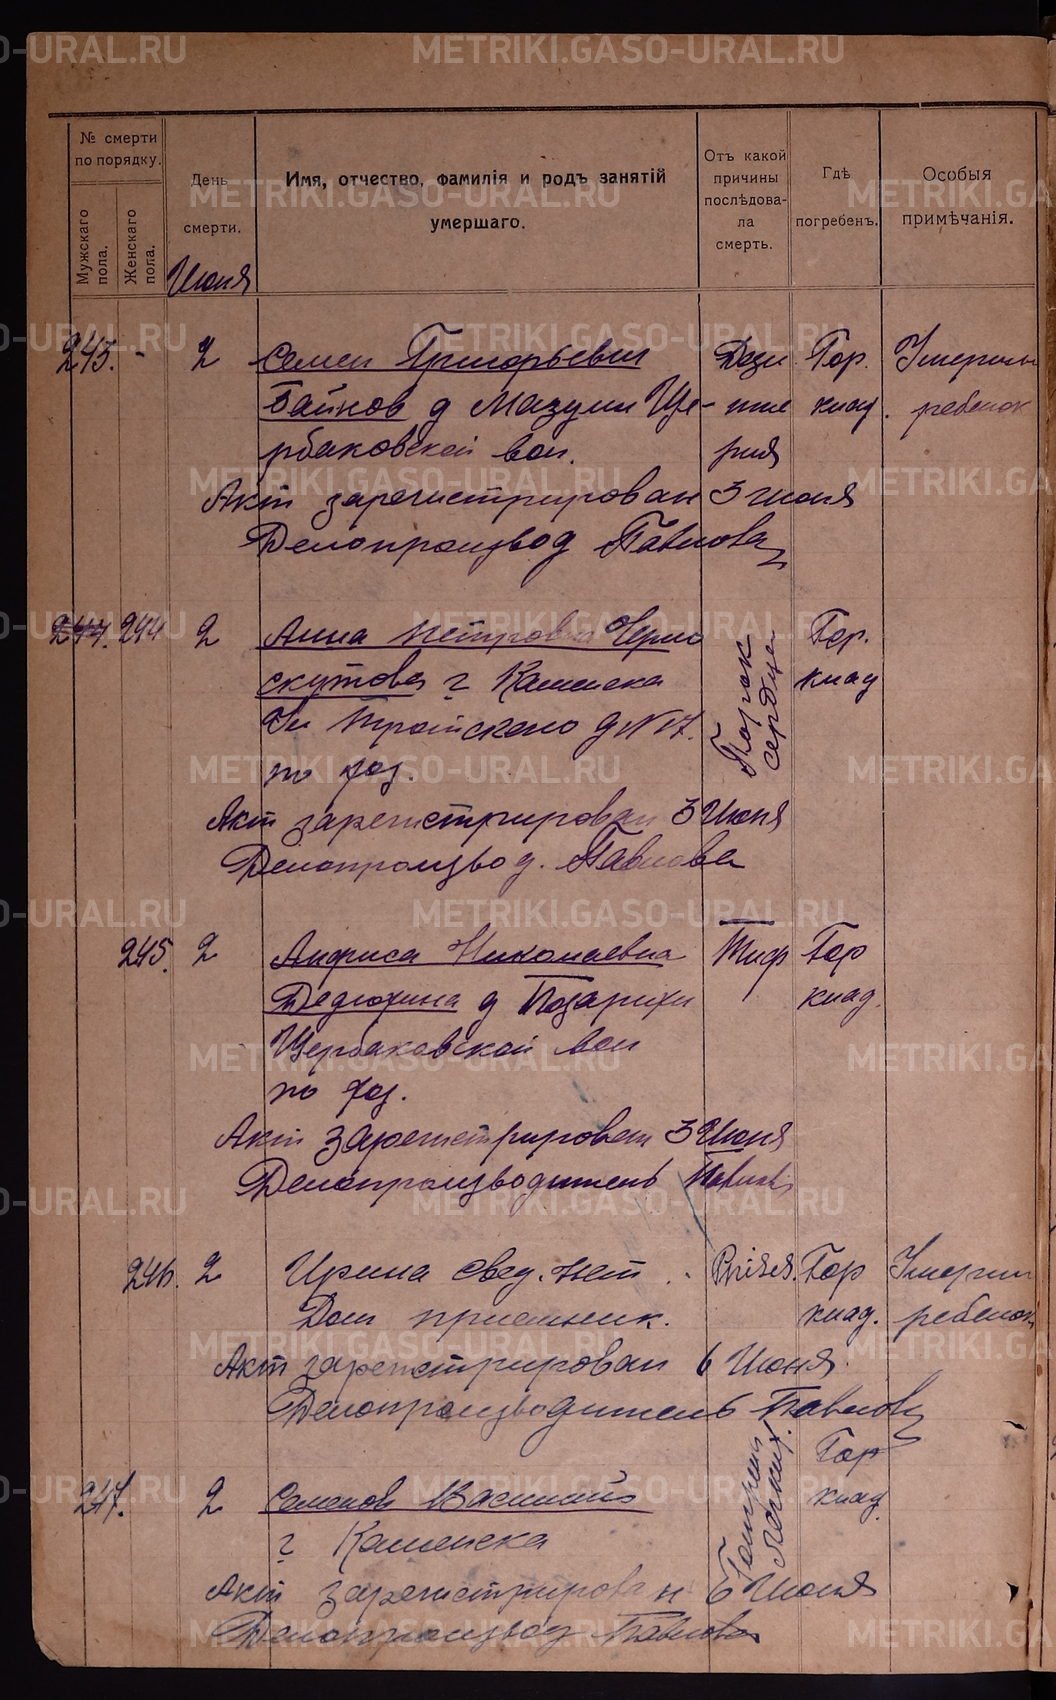 METRIKI.GASO-URAL.RU
№ смерти по порядку.
Мужскаго пола.
Женскаго пола.
День смерти.
Июня
Имя, отчество, фамилія и родъ занятій
умершаго.
Отъ какой
причины
послѣдова-
ла
смерть.
Гдѣ
погребенъ.
Особыя
примѣчанія.
243. - 2 Семен Григорьевич Гор.
Байков д Мазули Ще- клад. ребенок
рбаковской вол. рия
Акт зарегистрирован 3 июня
Делопроизвод Павлова
247. 244 2 Анна Петровна Черно Порок сердца Гор.
скутова г Каменска клад
д N 17.
по
Акт зарегистрирован 3 Июня
Делопроизвод. Павлова
245. 2 Анфиса Николаевна Тиф Гор
Дедюхина д Позарихи клад.
Щербаковской вол
по
Акт зарегистрирован 3 Июня
Делопроизводитель Павлова
246. 2 Ирина свед. нет Гор
Дом приемник. клад. ребенок
Акт зарегистрирован 6 Июня
Делопроизводитель Павлова
247. 2 Семенов Василий Гор
г Каменска легких. клад.
Акт зарегистрирован 6 Июня
Делопроизвод Павлова